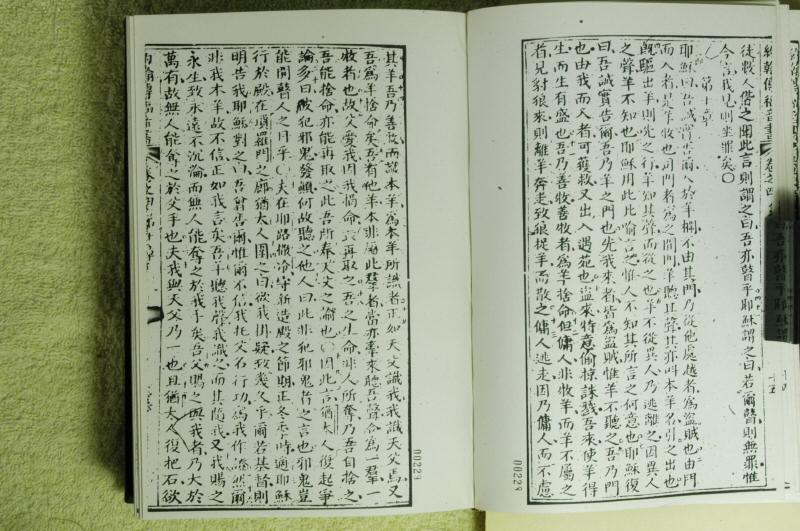 約翰傳福音書 卷之四
徒數人偕之聞此言則謂之曰吾亦瞽乎耶穌謂之曰若爾瞽則無罪惟
今言我見則坐罪矣〇
第十章
耶穌曰吾誠實告爾入於羊欄不由其門乃從他處越者為盜賊也由門
而入者是羊牧也司門者為之開門羊聽其聲其亦叫本羊名引之出也
既驅出羊則先之行羊知其聲而從之也羊不從異人乃逃離之因異人
之聲羊不知也耶穌用此比喻言之惟人不知其所言之何意也耶穌復
曰吾誠實告爾吾乃羊之門也先我來者皆為盜賊惟羊不聽之吾乃門
也由我而入者可獲救又出入遇苑也盜來特意偷掠誅戮吾來使羊得
生而生有盛也吾乃善牧善牧者為羊捨命但傭人非牧羊而羊不屬之
者見豺狼來則離羊奔走致狼捉羊而散之傭人逃走因乃傭人而不慮
00228
其羊吾乃善牧而識本羊為本羊所識者正如天父識我我識天父焉又
吾為羊捨命矣吾有他羊本非屬此羣者當亦牽來聽吾聲合為一羣一
牧者也故父愛我因我捐命以再取之吾之生命非人所奪乃吾自捨之
吾能捨命亦能再取之此吾所奉天父之諭也〇因此言猶大人復起爭
論多曰彼犯邪鬼發顛何故聽之他人曰此非犯邪鬼者之言也邪鬼豈
能開瞽人之目乎〇夫在耶路撒冷守新造殿之節期正冬季時適耶穌
行於殿在瑣羅門之廊猶大人圍之曰欲我掛疑致幾久乎爾若基督則
明告我耶穌對之曰吾曾告爾惟爾不信我托父名行功為我作證然爾
非我本羊故不信正如我言矣吾羊聽我聲我識之而其隨我又我賜之
永生致永遠不沉淪而無人能奪之於我手矣吾父賜之與我者乃大於
萬有故無人能奪之於父手也夫我與天父乃一也且猶大人復把石欲
00229